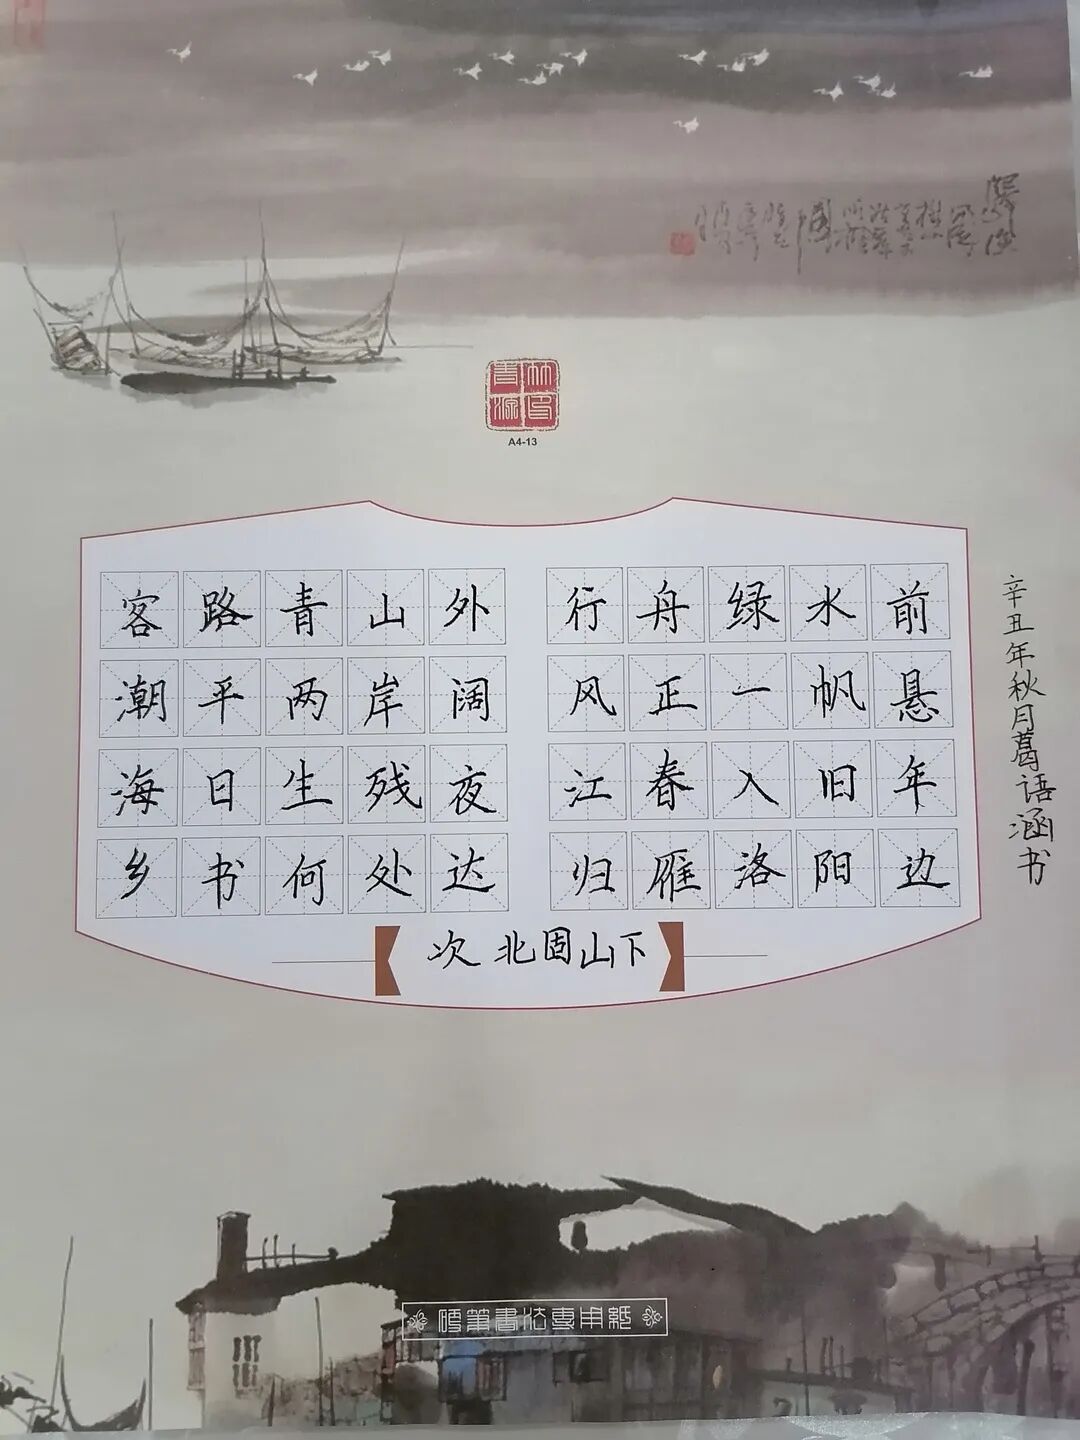 A4-13
客路青山外 行舟绿水前
潮平两岸阔 风正一帆悬
海日生残夜 江春入旧年
乡书何处达 归雁洛阳边
次北固山下
辛丑年秋月葛语涵书
硬笔書法専用紙